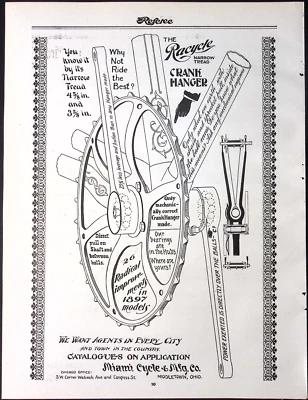 Referee
You
know it
by it's
Narrow
Tread
4⅝ in.
and
3⅞ in.
Why
Not
Ride
the
Best?
THE
Racycle
NARROW
TREAD
CRANK
HANGER
Direct
pull on
Shaft and
between
balls.
Only
mechanic-
ally correct
Crank Hanger
made.
Our
bearings
are
in the Hubs
Where are
yours?
26
Radical
improve-
ments
in
1897
models
POWER EXERTED IS DIRECTLY OVER THE BALLS
We Want Agents in Every City
and town in the country.
CATALOGUES ON APPLICATION
Miami Cycle & Mfg. Co.
CHICAGO OFFICE:
S.W. Corner Wabash Ave and Congress St.
MIDDLETOWN, OHIO.